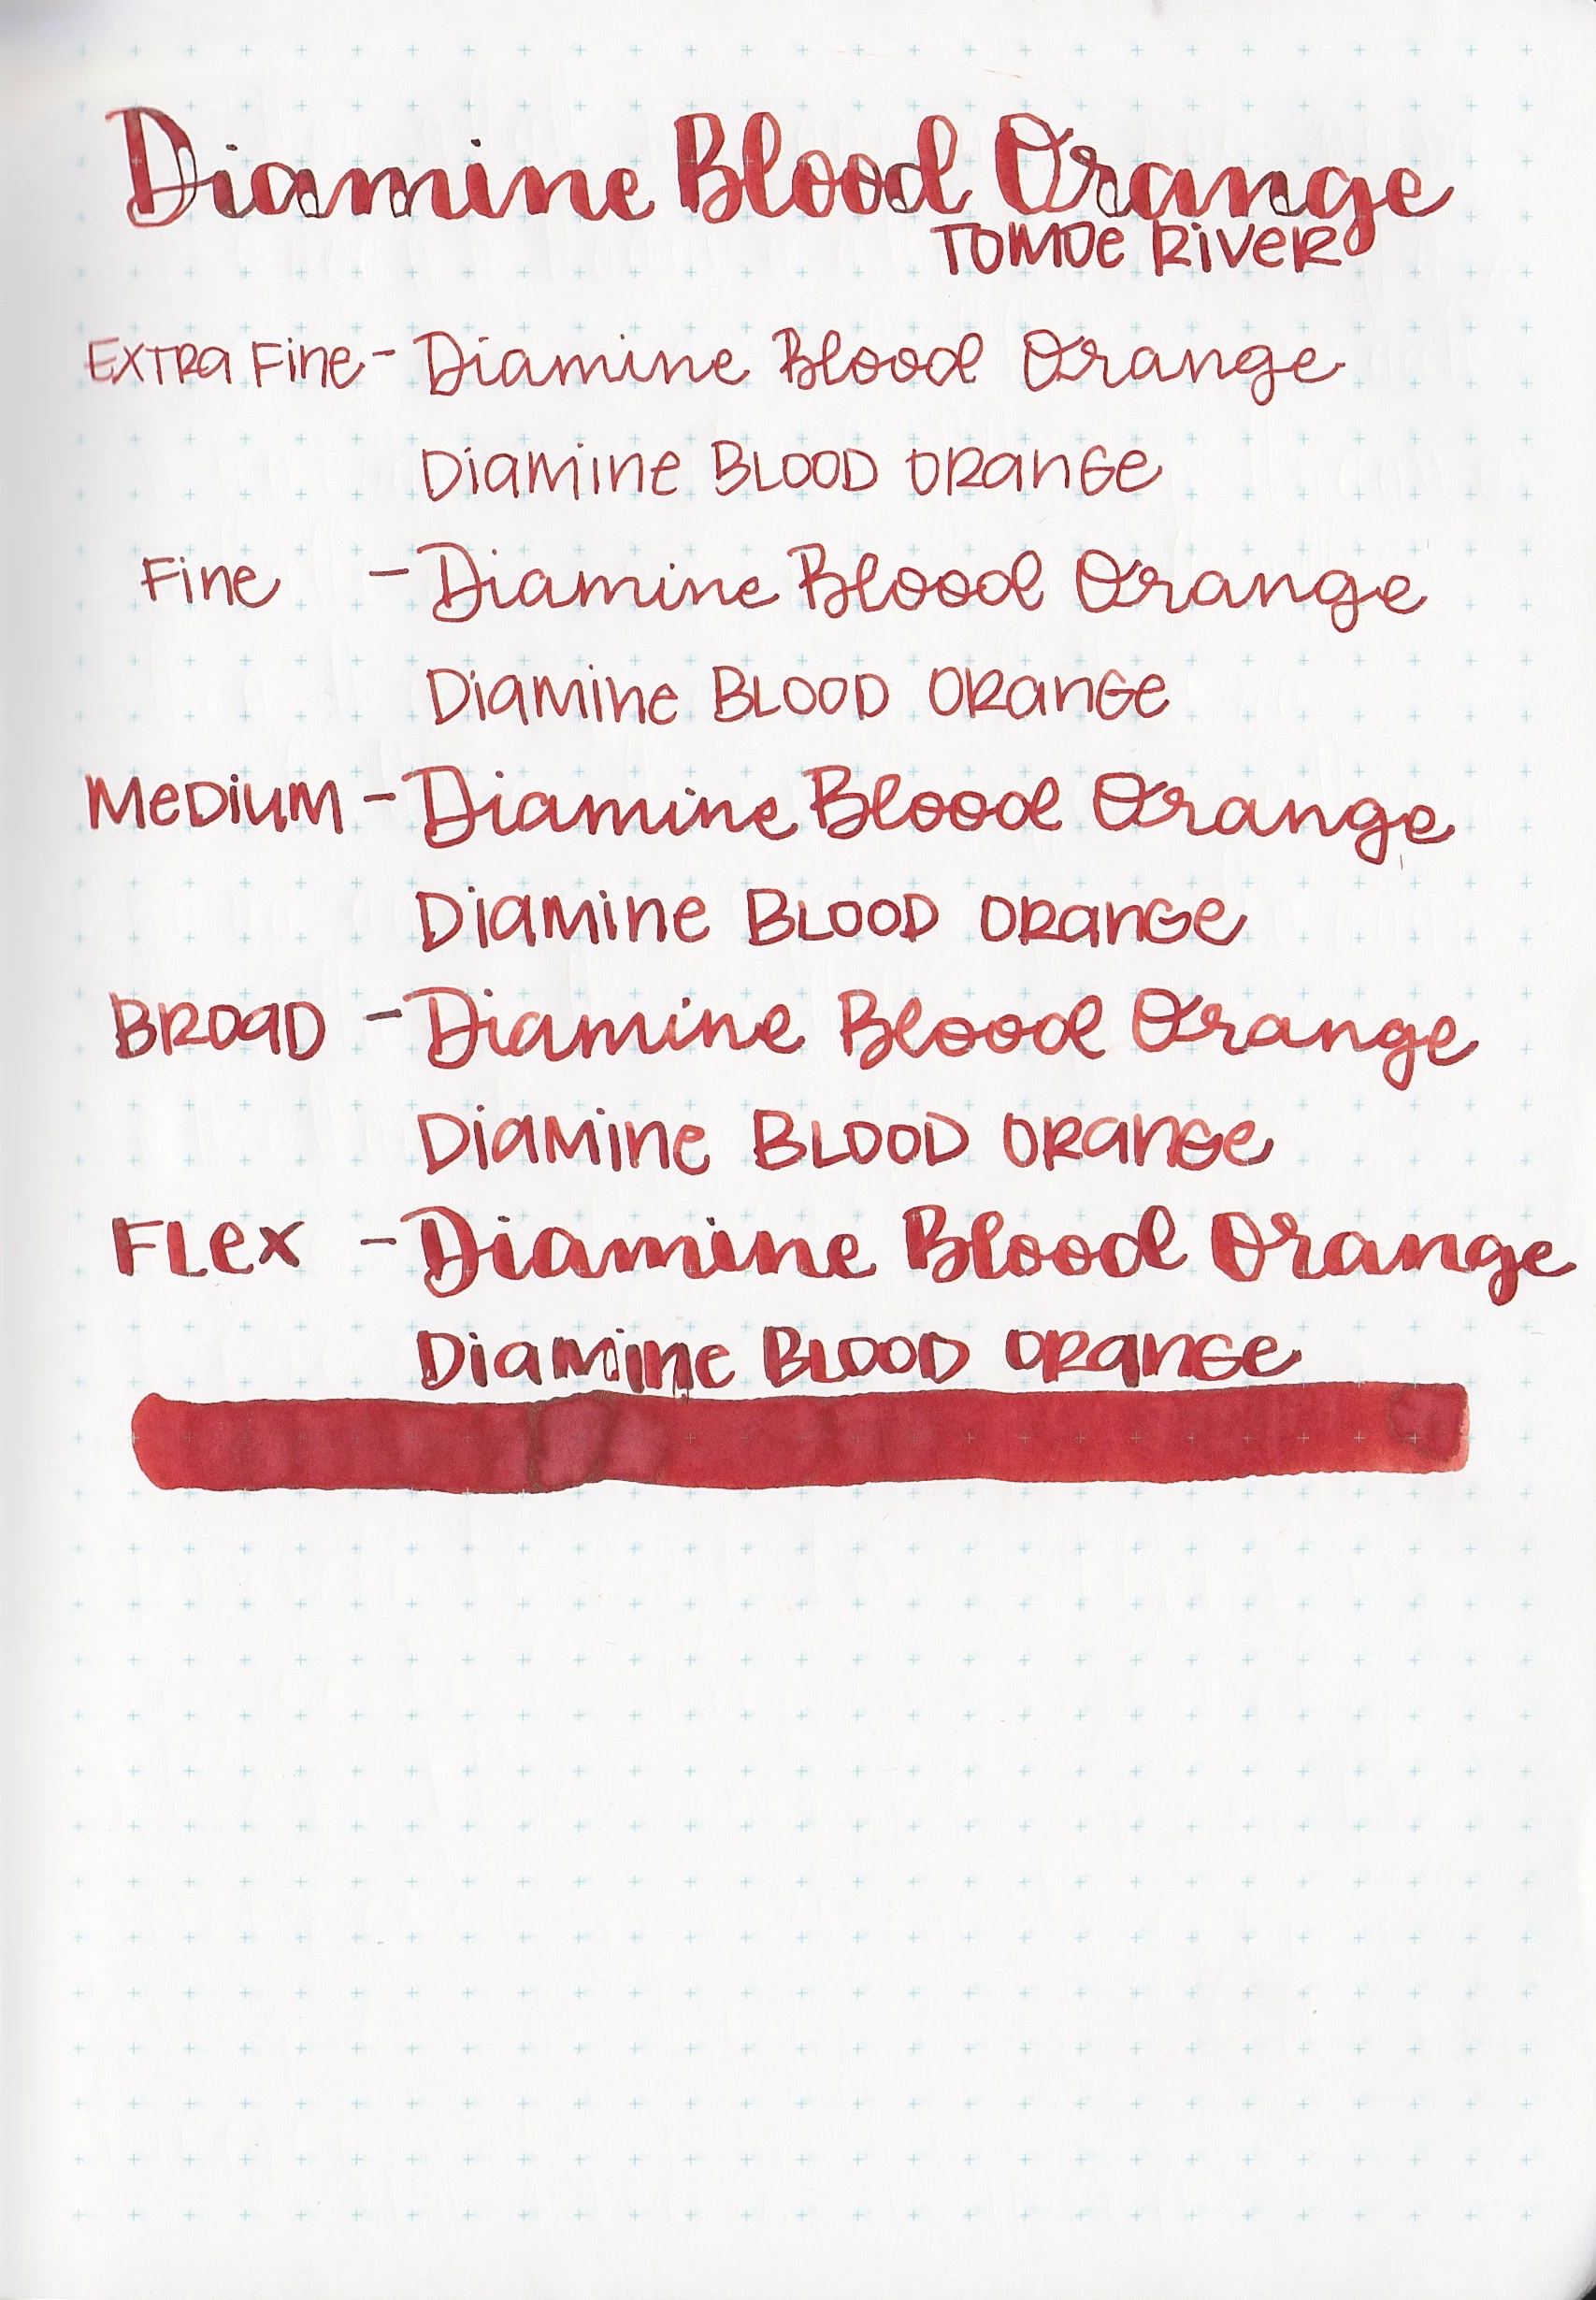 Diamine Blood Orange
Tomoe River
Extra Fine - Diamine Blood Orange
Diamine Blood Orange
Fine - Diamine Blood Orange
Diamine Blood Orange
Medium - Diamine Blood Orange
Diamine Blood Orange
Broad - Diamine Blood Orange
Diamine Blood Orange
Flex - Diamine Blood Orange
Diamine Blood Orange